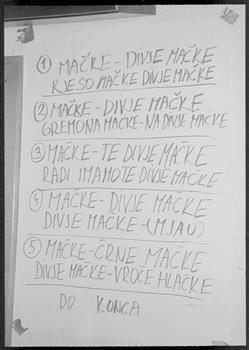 ① MAČKE - DIVJE MAČKE
KJE SO MAČKE DIVJE MAČKE
② MAČKE - DIVJE MAČKE
GREMO NA MAČKE - NA DIVJE MAČKE
③ MAČKE - TE DIVJE MAČKE
RADI IMAMO TE DIVJE MAČKE
④ MAČKE - DIVJE MAČKE
DIVJE MAČKE - (MJAU)
⑤ MAČKE - ČRNE MAČKE
DIVJE MAČKE - VROČE HLAČKE
DO KONCA